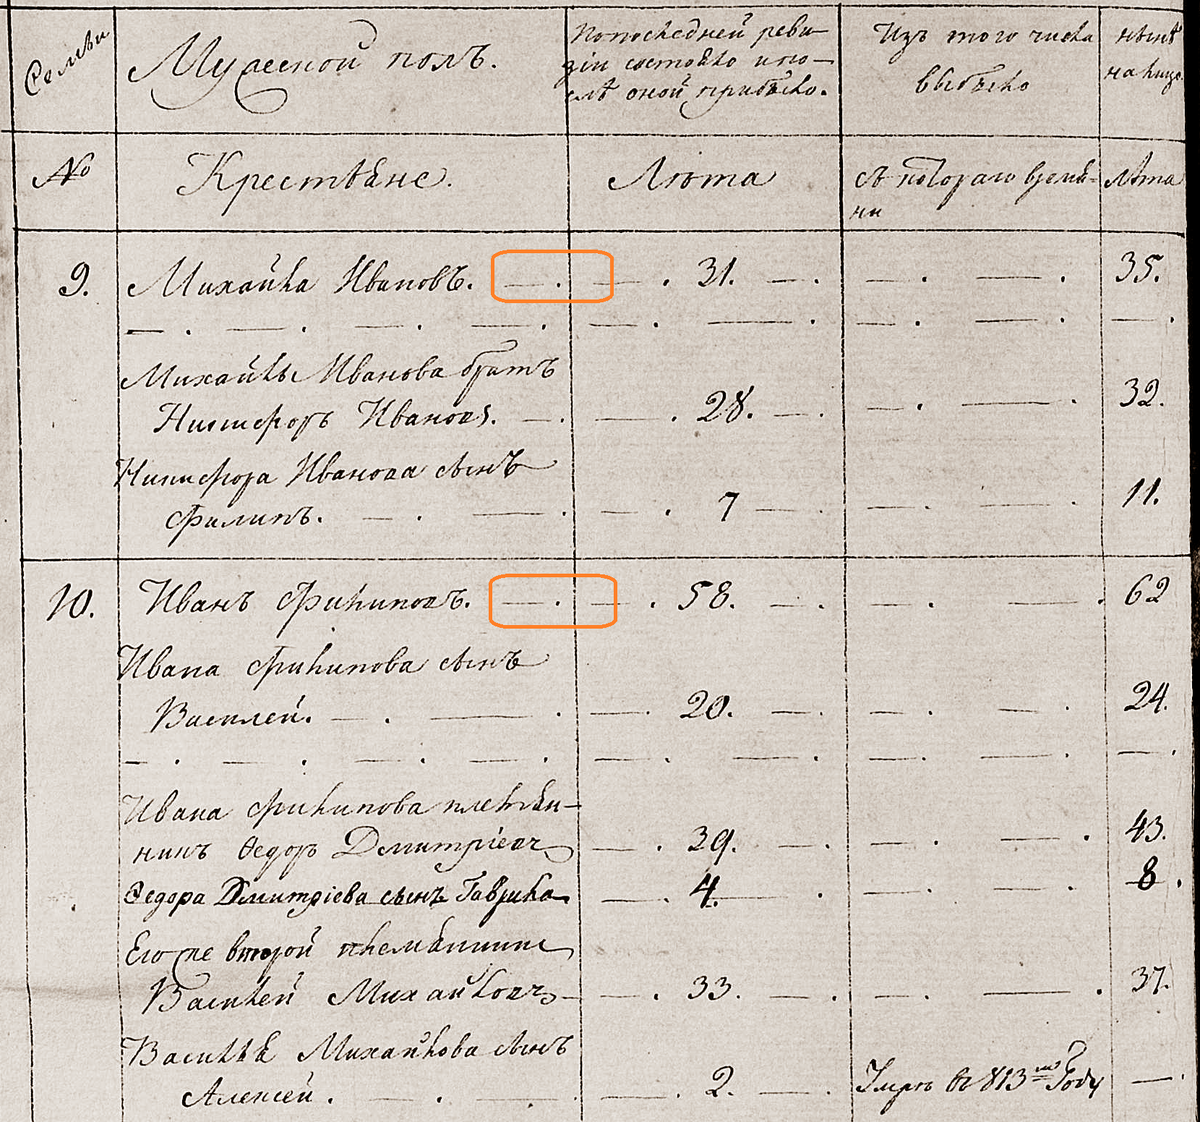 Семьи
Мужеской полъ.
По последней реви-
зіи состояло и по-
слѣ оной прибыло.
Изъ того числа
выбыло
нынѣ
на лицо.
№
Крестьяне.
Лѣта
съ котораго време-
ни
Лѣта
9. Михайла Ивановъ. — . — . 31. — . — . — . 35.
— . — . — . — . — . — . — . — . — .
Михайлы Иванова братъ
Никифоръ Ивановъ. — . — . 28. — . — . — . 32.
Никифора Иванова сынъ
Филипъ. — . — . — . 7 — . — . — . 11.
10. Иванъ Филиповъ. — . — . 58. — . — . — . 62
Ивана Филипова сынъ
Василей. — . — . — . 20. — . — . — . 24.
— . — . — . — . — . — . — . — . — .
Ивана Филипова племян-
никъ Ѳедоръ Дмитріевъ — . 39. — . — . — . 43.
Ѳедора Дмитріева сынъ Гаврила — . 4. — . — . — . 8.
Его же второй племянникъ
Василей Михайловъ — — . 33. — . — . — . 37.
Василья Михайлова сынъ
Алексей. — . — . — . 2. — . Умре въ 813м Году —